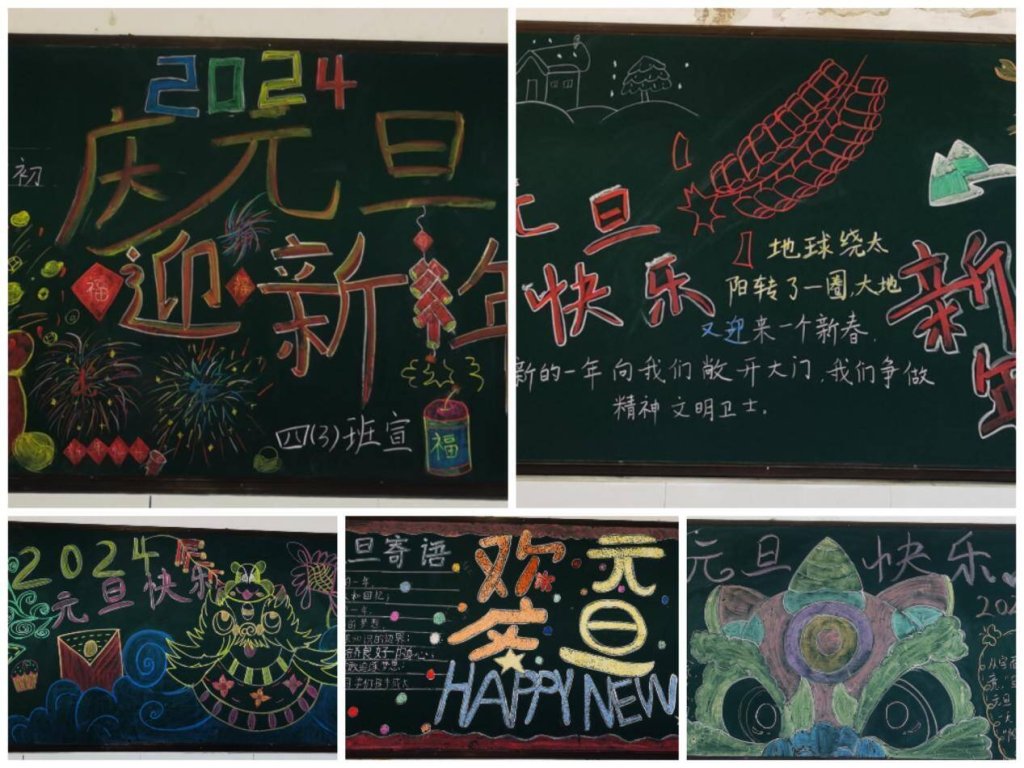 2024
庆元旦
初
迎新年
福
四(3)班宣
福
旦
快乐
地球绕太
阳转了一圈,大地
又迎来一个新春.
新的一年向我们敞开大门,我们争做
精神文明卫士.
新
年
2024
元旦快乐
旦寄语
欢庆
元旦
HAPPY NEW
元旦快乐